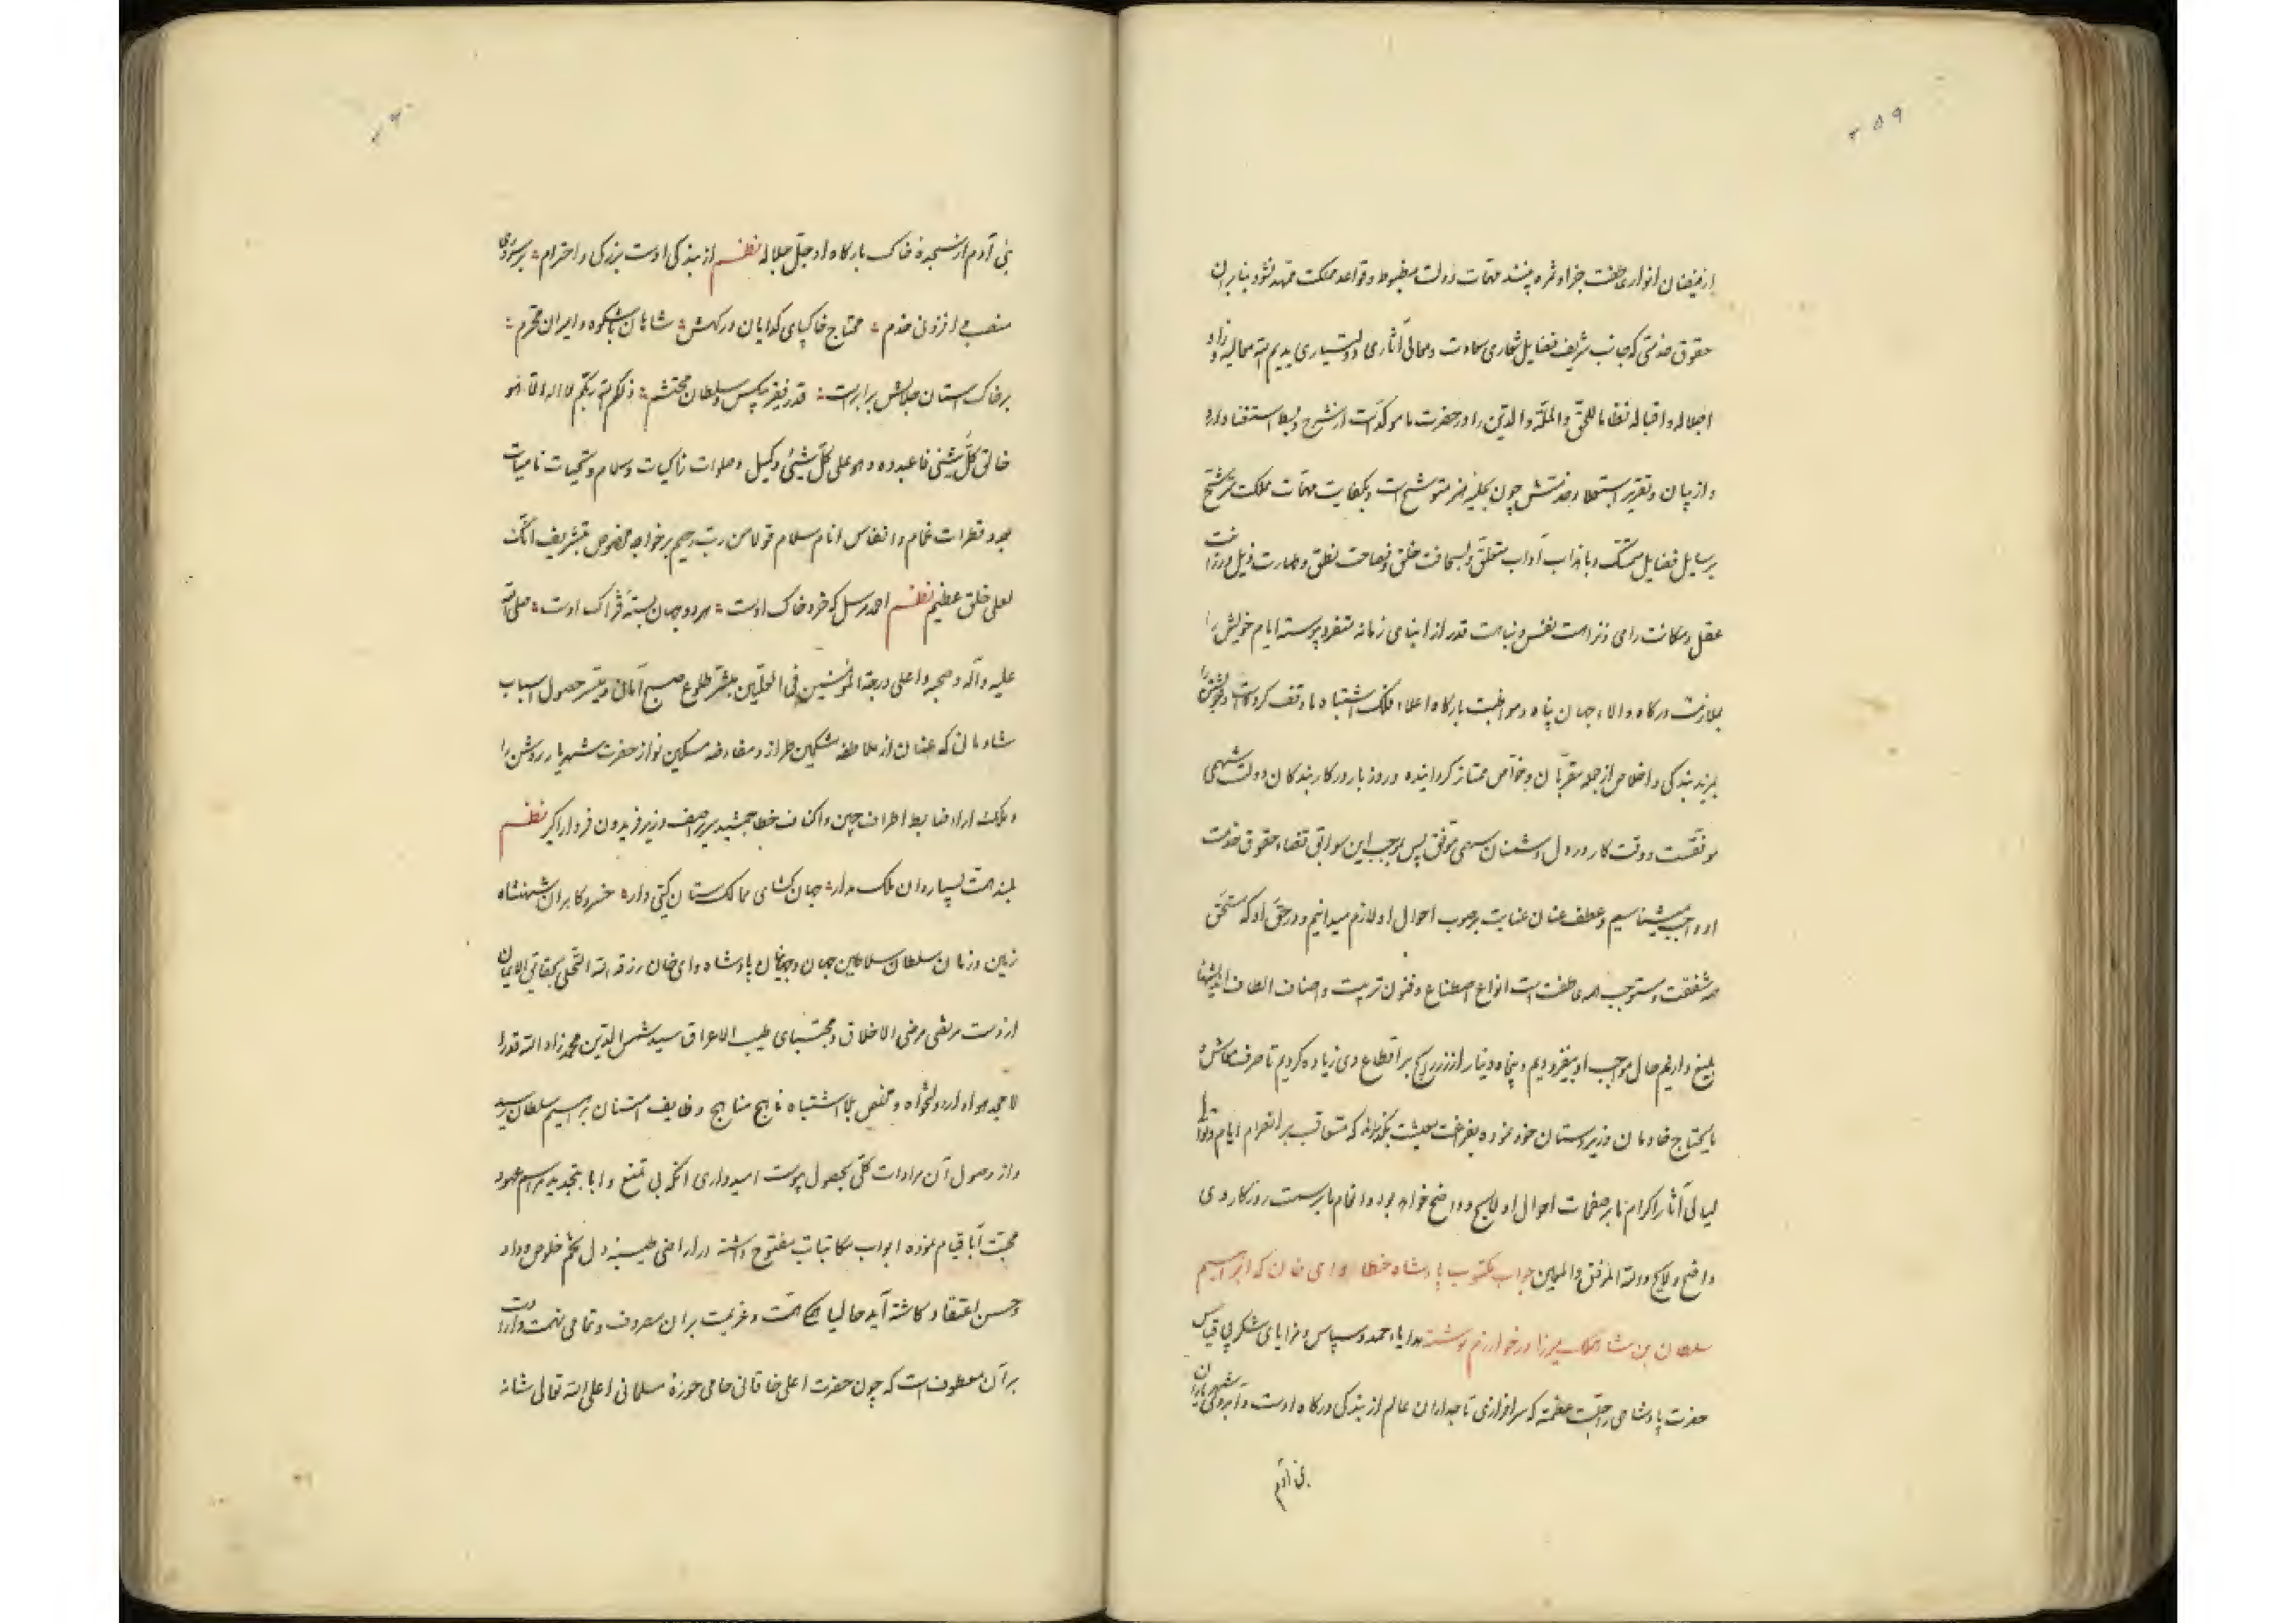 ۲۵۹
از فیضان انوار عاطفت جزا و ثمره پسند مهمات دولت مضبوط و قواعد مملکت ممهد نشود بنابران
حقوق خدمتی که جانب شریف فضایل شعاری سعادت و معالی آثاری دولتیاری
اجلاله و اقباله نظاما للحق والملة والدین را در حضرت ما موکدست از شرح و بسط استغنا دارد
و از بیان و تقریر استعلا و خدمتش چون بحلیه هنر متوشح است و بکفایت مهمات مملکت مترشح
برسایل فضایل متمسک و باهداب آداب متعلق ولسجافت خلق و فصاحت نطق و طهارت ذیل و رزانت
عقل و مکانت رای و نزاهت نفس و نباهت قدر از ابنای زمانه متفرد پیوسته ایام خویش را
بملازمت درگاه والاء جهان پناه و مواظبت بارگاه اعلاء فلک اشتباه ما وقف کرده است و خویشتن را
بمزید بندگی و اخلاص از جمله مقربان و خواص ممتاز گردانیده و روز بار در کار بندگان دولت سهمی
موفقست و وقت کار در دل دشمنان سهمی موفق پس بموجب این سوابق قضاء حقوق خدمت
او واجب میشناسیم و عطف عنان عنایت بر صوب احوال او لازم میدانیم و در حق او که مستحق
همه شفقت و مستوجب همه عاطفت است انواع اصطناع و فنون تربیت و اصناف الطاف
بلیغ داریم حال موجب او بیفزودیم و پنجاه دینار از زر رایج بر اقطاع وی زیاده کردیم تا صرف معاش و
مایحتاج خادمان و زیردستان خود نموده بفراغت معیشت بگذراند که متعاقب بر انصرام ایام و توالی
لیالی آثار اکرام ما بر صفحات احوال او لایح و واضح خواهد بود و انعام ما بر سمت روزگار وی
واضح و لایح والله الموفق والمعین جواب مکتوب پادشاه خطا دای خان که ابراهیم
سلطان بن شاهرخ میرزا در خوارزم نوشته هدایاء حمد و سپاس و مزایای شکر بی قیاس
حضرت پادشاهی را جلت عظمته که سرافرازی تاجداران عالم از بندگی درگاه اوست و آبروی شهریاران
بنی آدم
بنی آدم از سجدهٔ خاک بارگاه او جل جلاله نظم از بندگی اوست بزرگی و احترام
منصب افزونی خدم محتاج خاکپای گدایان درگهش شاهان باشکوه و امیران محترم
بر خاک استان جلالش برابرست قدر فقیر بیکس و سلطان محتشم ذلکم الله ربکم لا اله الا هو
خالق کل شئی فاعبدوه و هو علی کل شئی وکیل و صلوات زاکیات و سلام و تحیات نامیات
بعدد قطرات غمام و انفاس انام سلام قولا من رب رحیم بر خواجه مخصوص بتشریف انک
لعلی خلق عظیم نظم احمد مرسل که خرد خاک اوست هر دو جهان بسته فتراک اوست صلی الله
علیه و آله و صحبه و اعلی درجة المؤمنین فی العلیین مبشر طلوع صبح آمانی و میسر حصول اسباب
شادمانی که عنوان از ملاطفه مشکین طراز و مفاوضه مسکین نواز حضرت شهریار روشن را
و ملکت آرا ضابط اطراف چین و اکناف خطا جمشید سریر آصف وزیر فریدون فر دارا گیر نظم
بلند همت بسیاردان ملک مدار جهان کشای ممالک ستان کیتی دار خسرو کامران شهنشاه
زمین و زمان سلطان سلاطین جهان و جهانبان پادشاه دای خان رزقه الله التحلی بحقایق الایمان
از دست مرتضی مرضی الاخلاق و مجتبای طیب الاعراق سید شمس الدین محمد زاد الله قدرا
لا جد هوادار دولتخواه و مخلص بلا اشتباه ناهج مناهج وظایف امتنان ابراهیم سلطان رسید
و از وصول آن مرادات کلی بحصول پیوست امیدواری آنکه بی تمنع و ابا بتجدید مراسم عهود
محبت آبا قیام نموده ابواب مکاتبات مفتوح داشته در اراضی طیبه دل تخم خلوص وداد
و حسن اعتقاد کاشته آید حالیا همگی همت و عزیمت بران مصروف و تمامی نهمت و ارادت
بر آن معطوف است که چون حضرت اعلی خاقانی حامی حوزهٔ مسلمانی اعلی الله تعالی شانه